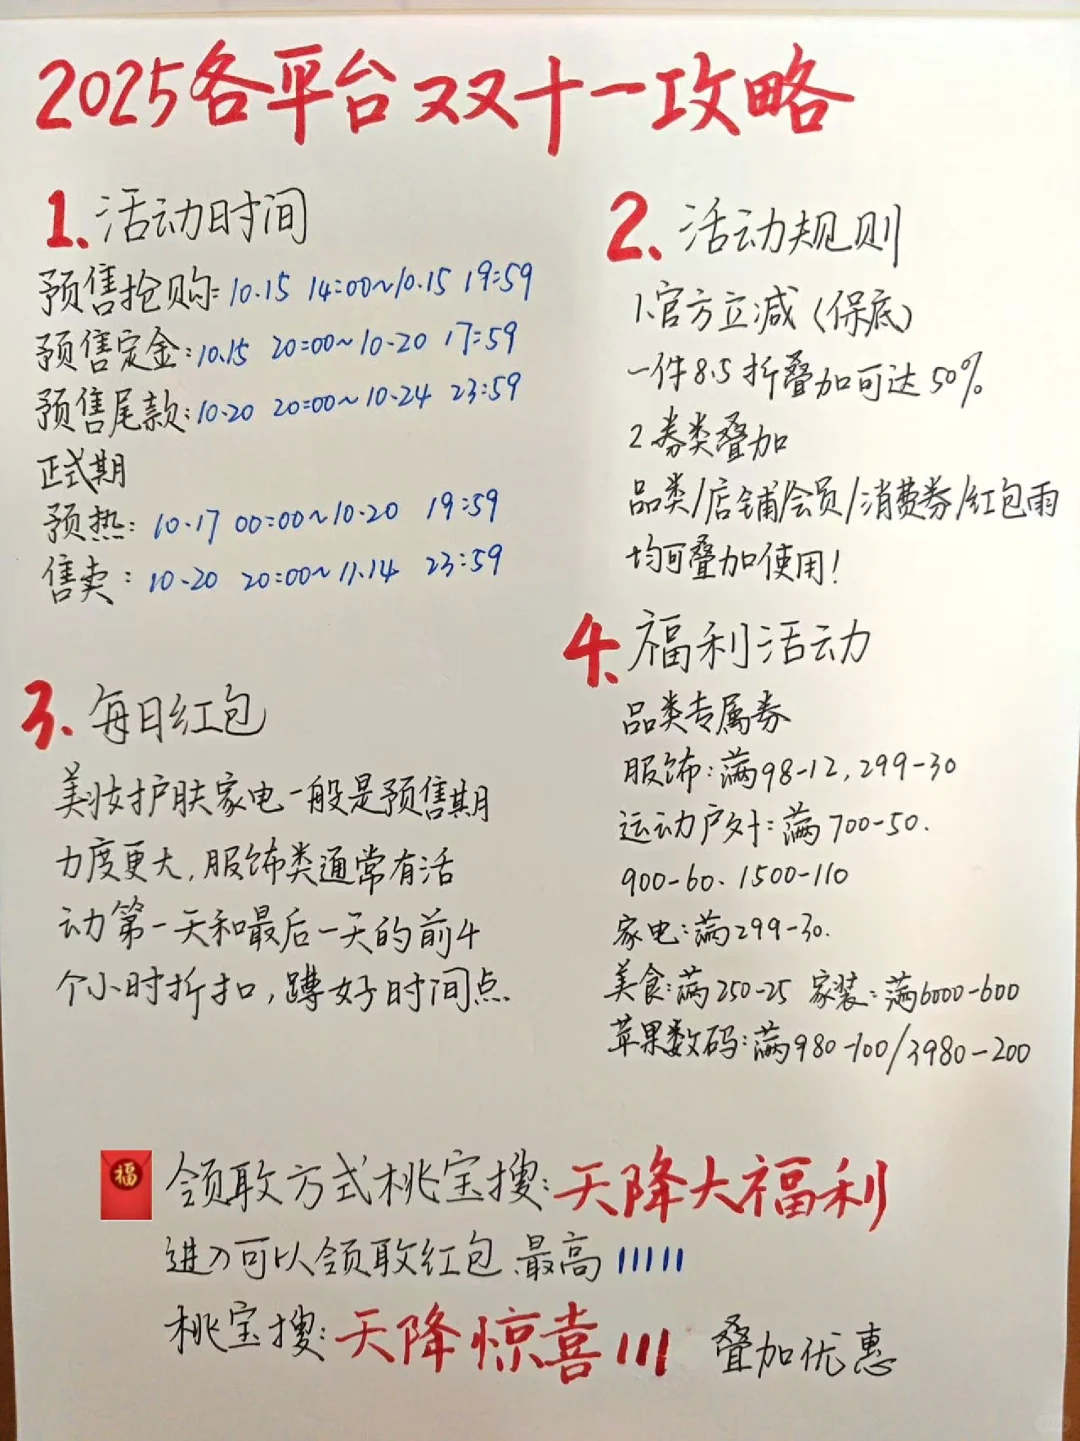 2025各平台双十一攻略
1.活动时间
预售抢购:10.15 14:00~10.15 19:59
预售定金:10.15 20:00~10.20 17:59
预售尾款:10.20 20:00~10.24 23:59
正式期
预热:10.17 00:00~10.20 19:59
售卖:10.20 20:00~11.14 23:59
2.活动规则
1.官方立减(保底)
一件8.5折叠加可达50%
2券类叠加
品类/店铺/会员/消费券/红包雨
均可叠加使用!
3.每日红包
美妆护肤家电一般是预售期
力度更大,服饰类通常有活
动第一天和最后一天的前4
个小时折扣,蹲好时间点.
4.福利活动
品类专属券
服饰:满98-12,299-30
运动户外:满700-50.
900-60.1500-110
家电:满299-30.
美食:满250-25 家装:满6000-600
苹果数码:满980-100/3980-200
福
领取方式桃宝搜:天降大福利
进入可以领取红包最高11111
桃宝搜:天降惊喜111 叠加优惠